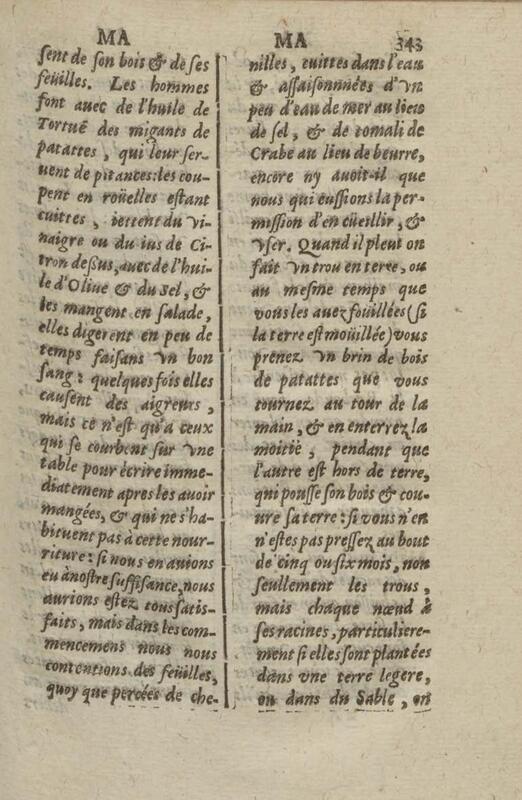 MA
sent de son bois & de ses
feüilles. Les hommes
font auec de l'huile de
Tortuë des migants de
patattes, qui leur ser-
uent de pitances: les cou-
pent en roüelles estant
cuittes, iettent du vi-
naigre ou du ius de Ci-
tron deßus, auec de l'hui-
le d'Oliue & du sel, &
les mangent en salade,
elles digerent en peu de
temps faisans vn bon
sang: quelques fois elles
causent des aigreurs,
mais ce n'est qu'à ceux
qui se courbent sur vne
table pour écrire imme-
diatement apres les auoir
mangées, & qui ne s'ha-
bituent pas à cette nour-
riture: si nous en auions
eu à nostre suffisance, nous
aurions estez tous satis-
faits, mais dans les com-
mencemens nous nous
contentions des feüilles,
quoy que percées de che-
MA
343
nilles, cuittes dans l'eau
& assaisonnées d'vn
peu d'eau de mer au lieu
de sel, & de tomali de
Crabe au lieu de beurre,
encore ny auoit-il que
nous qui eussions la per-
mission d'en cüeillir, &
vser. Quand il pleut on
fait vn trou en terre, ou
au mesme temps que
vous les auez foüillées (si
la terre est moüillée) vous
prenez vn brin de bois
de patattes que vous
tournez au tour de la
main, & en enterrez la
moitié, pendant que
l'autre est hors de terre,
qui pousse son bois & cou-
ure sa terre: si vous n'en
n'estes pas pressez au bout
de cinq ou six mois, non
seullement les trous,
mais chaque nœud à
ses racines, particuliere-
ment si elles sont plantées
dans vne terre legere,
ou dans du Sable, on